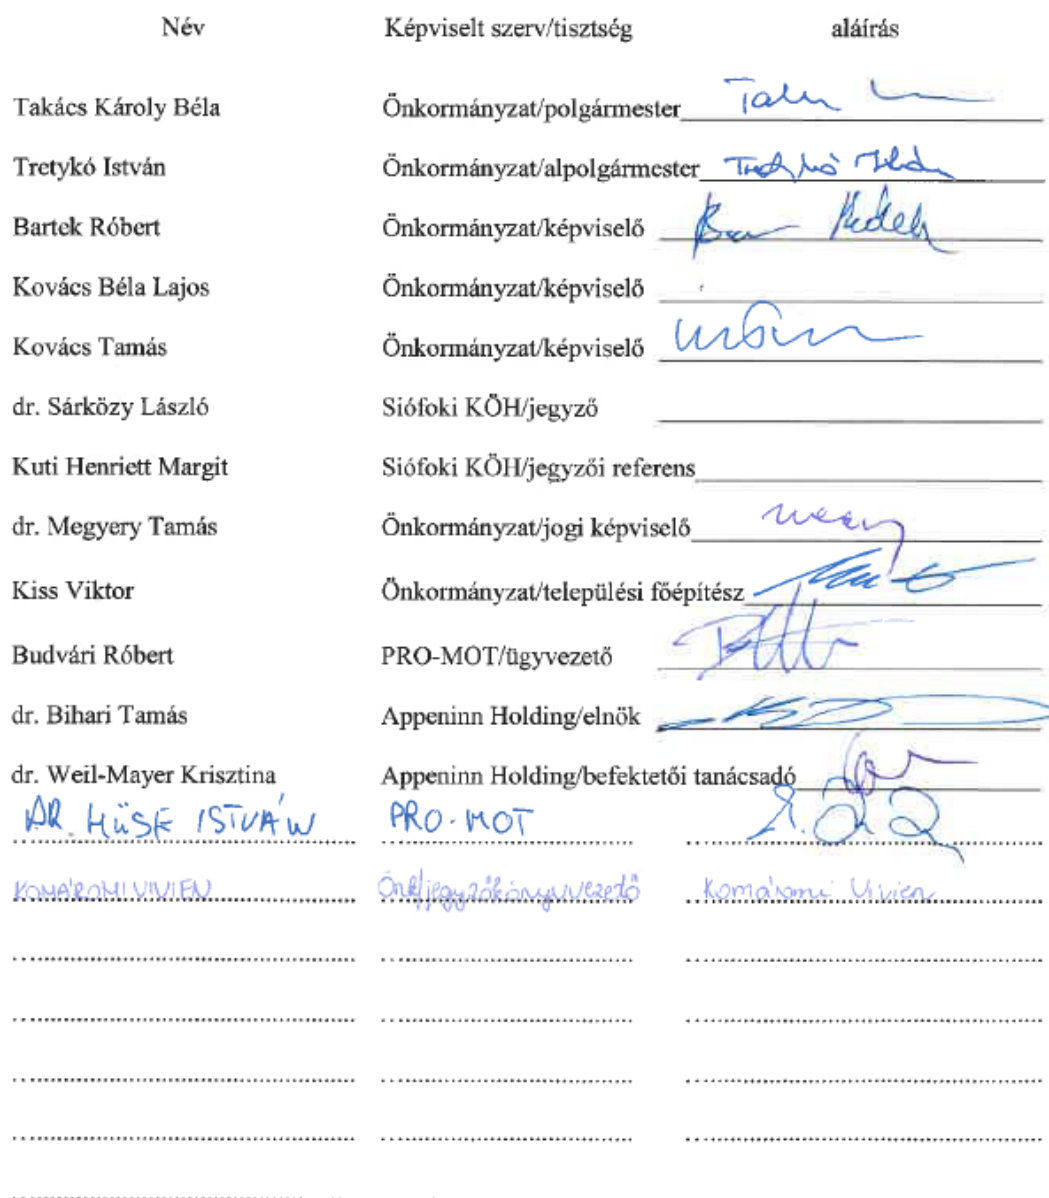 Név Képviselt szerv/tisztség aláírás
Takács Károly Béla Önkormányzat/polgármester
Tretykó István Önkormányzat/alpolgármester Tretykó István
Bartek Róbert Önkormányzat/képviselő
Kovács Béla Lajos Önkormányzat/képviselő
Kovács Tamás Önkormányzat/képviselő
dr. Sárközy László Siófoki KÖH/jegyző
Kuti Henriett Margit Siófoki KÖH/jegyzői referens
dr. Megyery Tamás Önkormányzat/jogi képviselő
Kiss Viktor Önkormányzat/települési főépítész
Budvári Róbert PRO-MOT/ügyvezető
dr. Bihari Tamás Appeninn Holding/elnök
dr. Weil-Mayer Krisztina Appeninn Holding/befektetői tanácsadó
DR. HÜSE ISTVÁN PRO-MOT
KOMÁROMI VIVIEN Önk/jegyzőkönyvvezető Komáromi Vivien